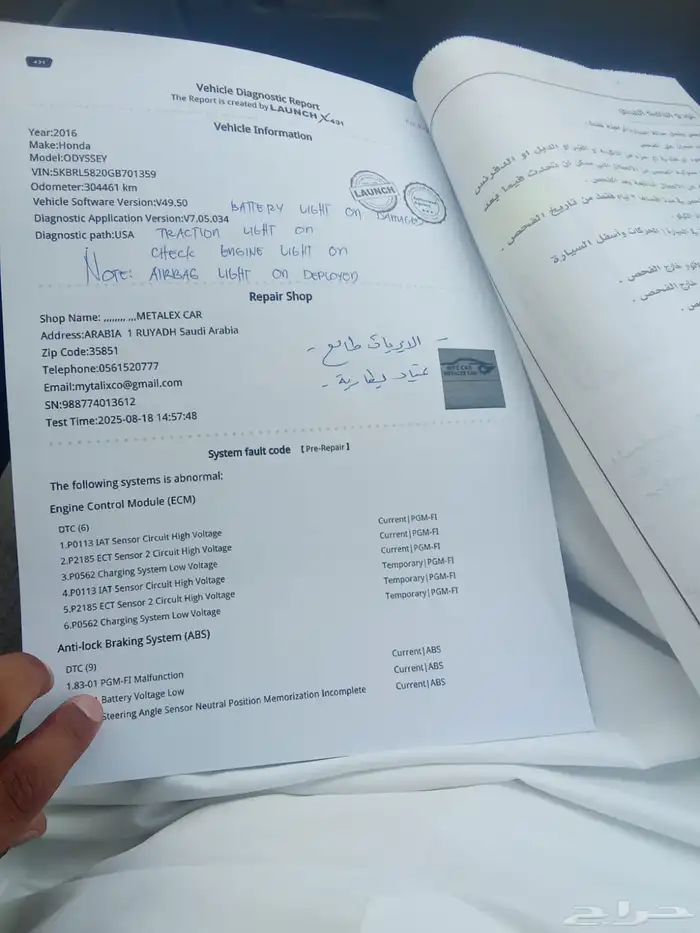 Vehicle Diagnostic Report
The Report is created by LAUNCH X431
Vehicle Information
Year:2016
Make:Honda
Model:ODYSSEY
VIN:5KBRL5820GB701359
Odometer:304461 km
Vehicle Software Version:V49.50
Diagnostic Application Version:V7.05.034
Diagnostic path:USA
LAUNCH
BATTERY LIGHT ON DAMAGE
TRACTION LIGHT ON
CHECK ENGINE LIGHT ON
NOTE: AIRBAG LIGHT ON DEPLOYED
Repair Shop
Shop Name: ..........METALEX CAR
Address:ARABIA 1 RUYADH Saudi Arabia
Zip Code:35851
Telephone:0561520777
Email:mytalixco@gmail.com
SN:988774013612
Test Time:2025-08-18 14:57:48
- الايرباق طالع -
System fault code [Pre-Repair]
The following systems is abnormal:
Engine Control Module (ECM)
DTC (6)
1.P0113 IAT Sensor Circuit High Voltage Current|PGM-FI
2.P2185 ECT Sensor 2 Circuit High Voltage Current|PGM-FI
3.P0562 Charging System Low Voltage Current|PGM-FI
4.P0113 IAT Sensor Circuit High Voltage Temporary|PGM-FI
5.P2185 ECT Sensor 2 Circuit High Voltage Temporary|PGM-FI
6.P0562 Charging System Low Voltage Temporary|PGM-FI
Anti-lock Braking System (ABS)
DTC (9)
1.83-01 PGM-FI Malfunction Current|ABS
Battery Voltage Low Current|ABS
Steering Angle Sensor Neutral Position Memorization Incomplete Current|ABS
حراج